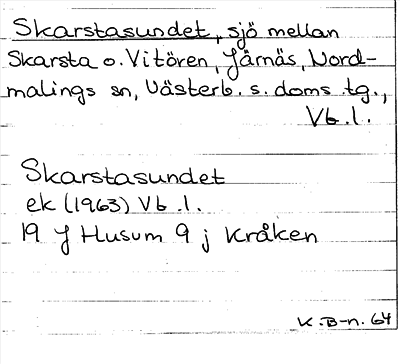 Skarstasundet, sjö mellan
Skarsta o. Vitören, Järnäs, Nord-
malings sn, Västerb. s. doms. tg.,
Vb. l.
Skarstasundet
ek (1963) Vb. l.
19 J Husum 9 j Kråken
K. B-n. 64